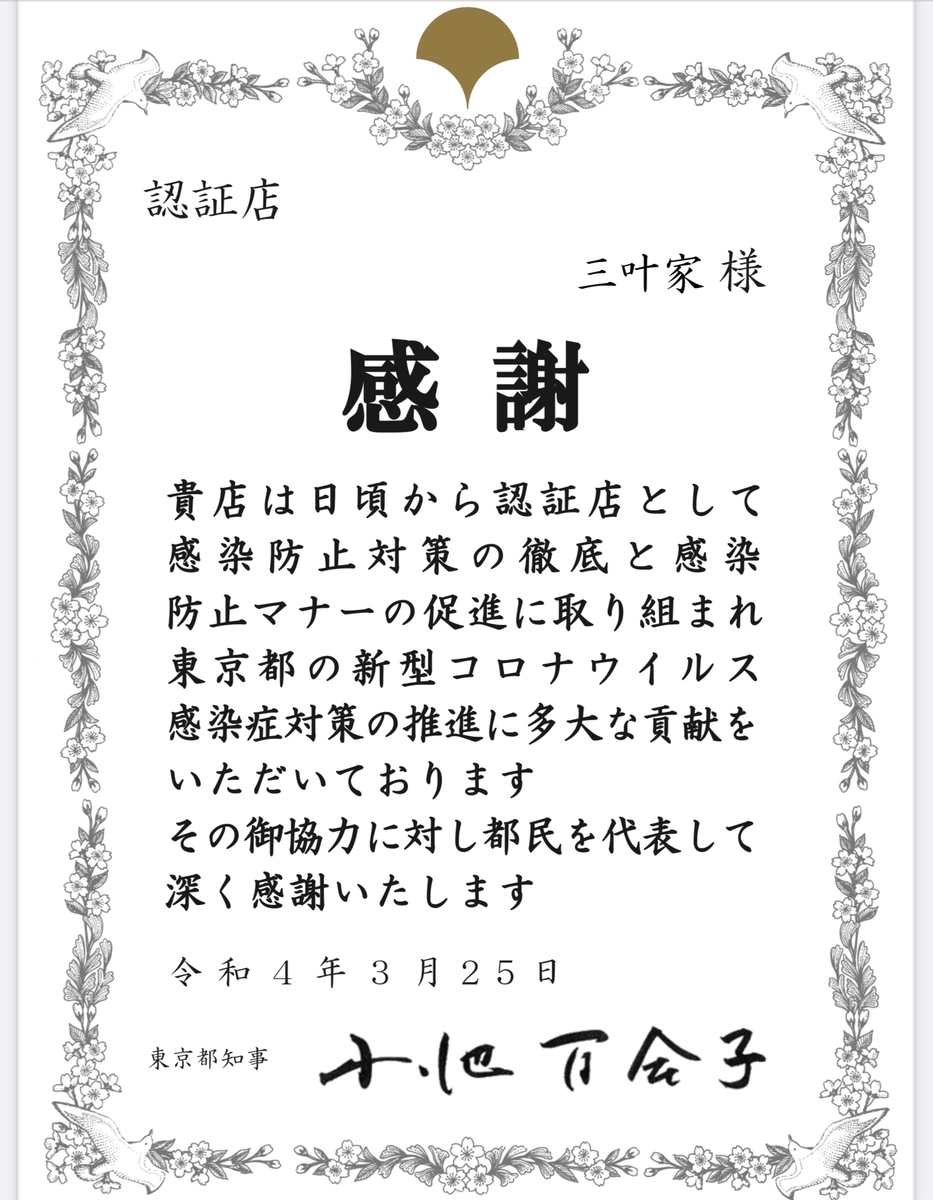 認証店
三叶家 様
感謝
貴店は日頃から認証店として
感染防止対策の徹底と感染
防止マナーの促進に取り組まれ
東京都の新型コロナウイルス
感染症対策の推進に多大な貢献を
いただいております
その御協力に対し都民を代表して
深く感謝いたします
令和４年３月２５日
東京都知事 小池百合子